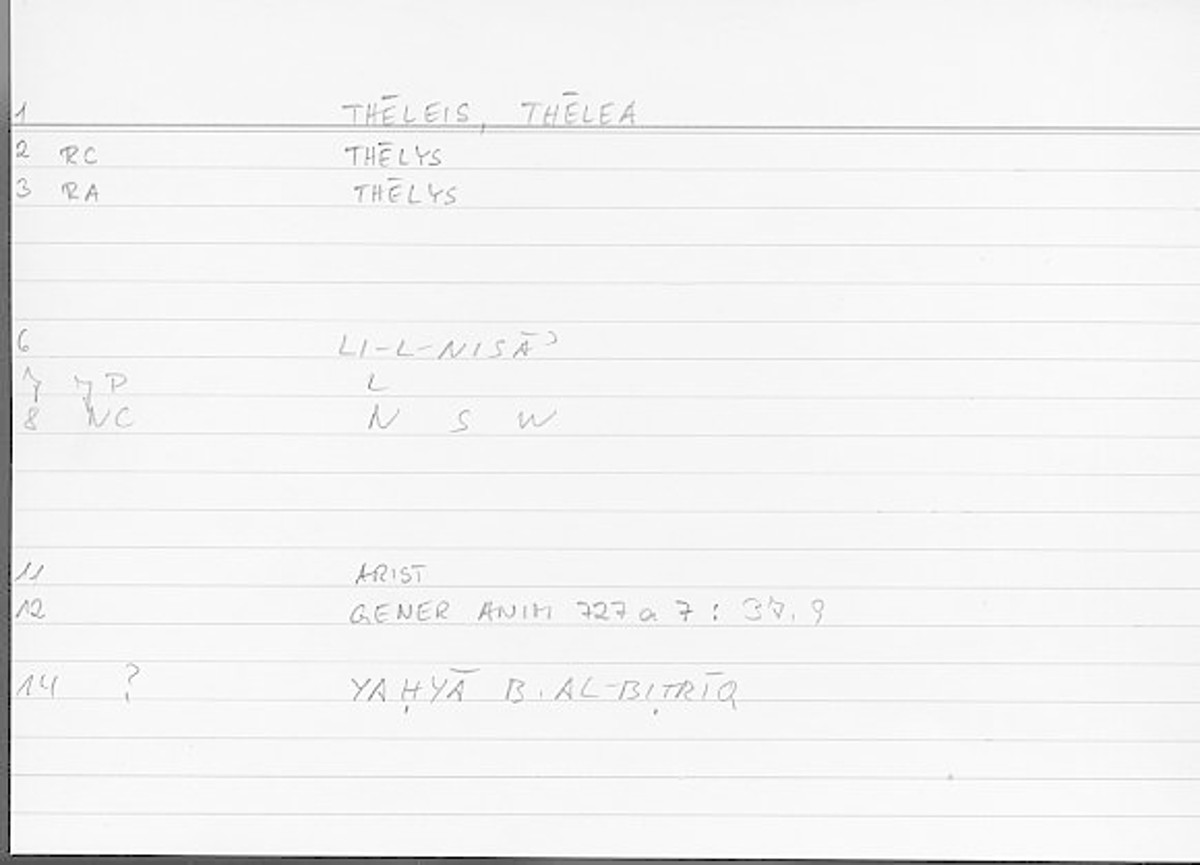 1 THĒLEIS, THĒLEA
2 RC THĒLYS
3 RA THĒLYS
6 LI-L-NISĀʾ
7 7P L
8 NC N S W
11 ARIST
12 GENER ANIM 727 a 7 : 37.9
14 ? YAḤYĀ B. AL-BIṬRĪQ